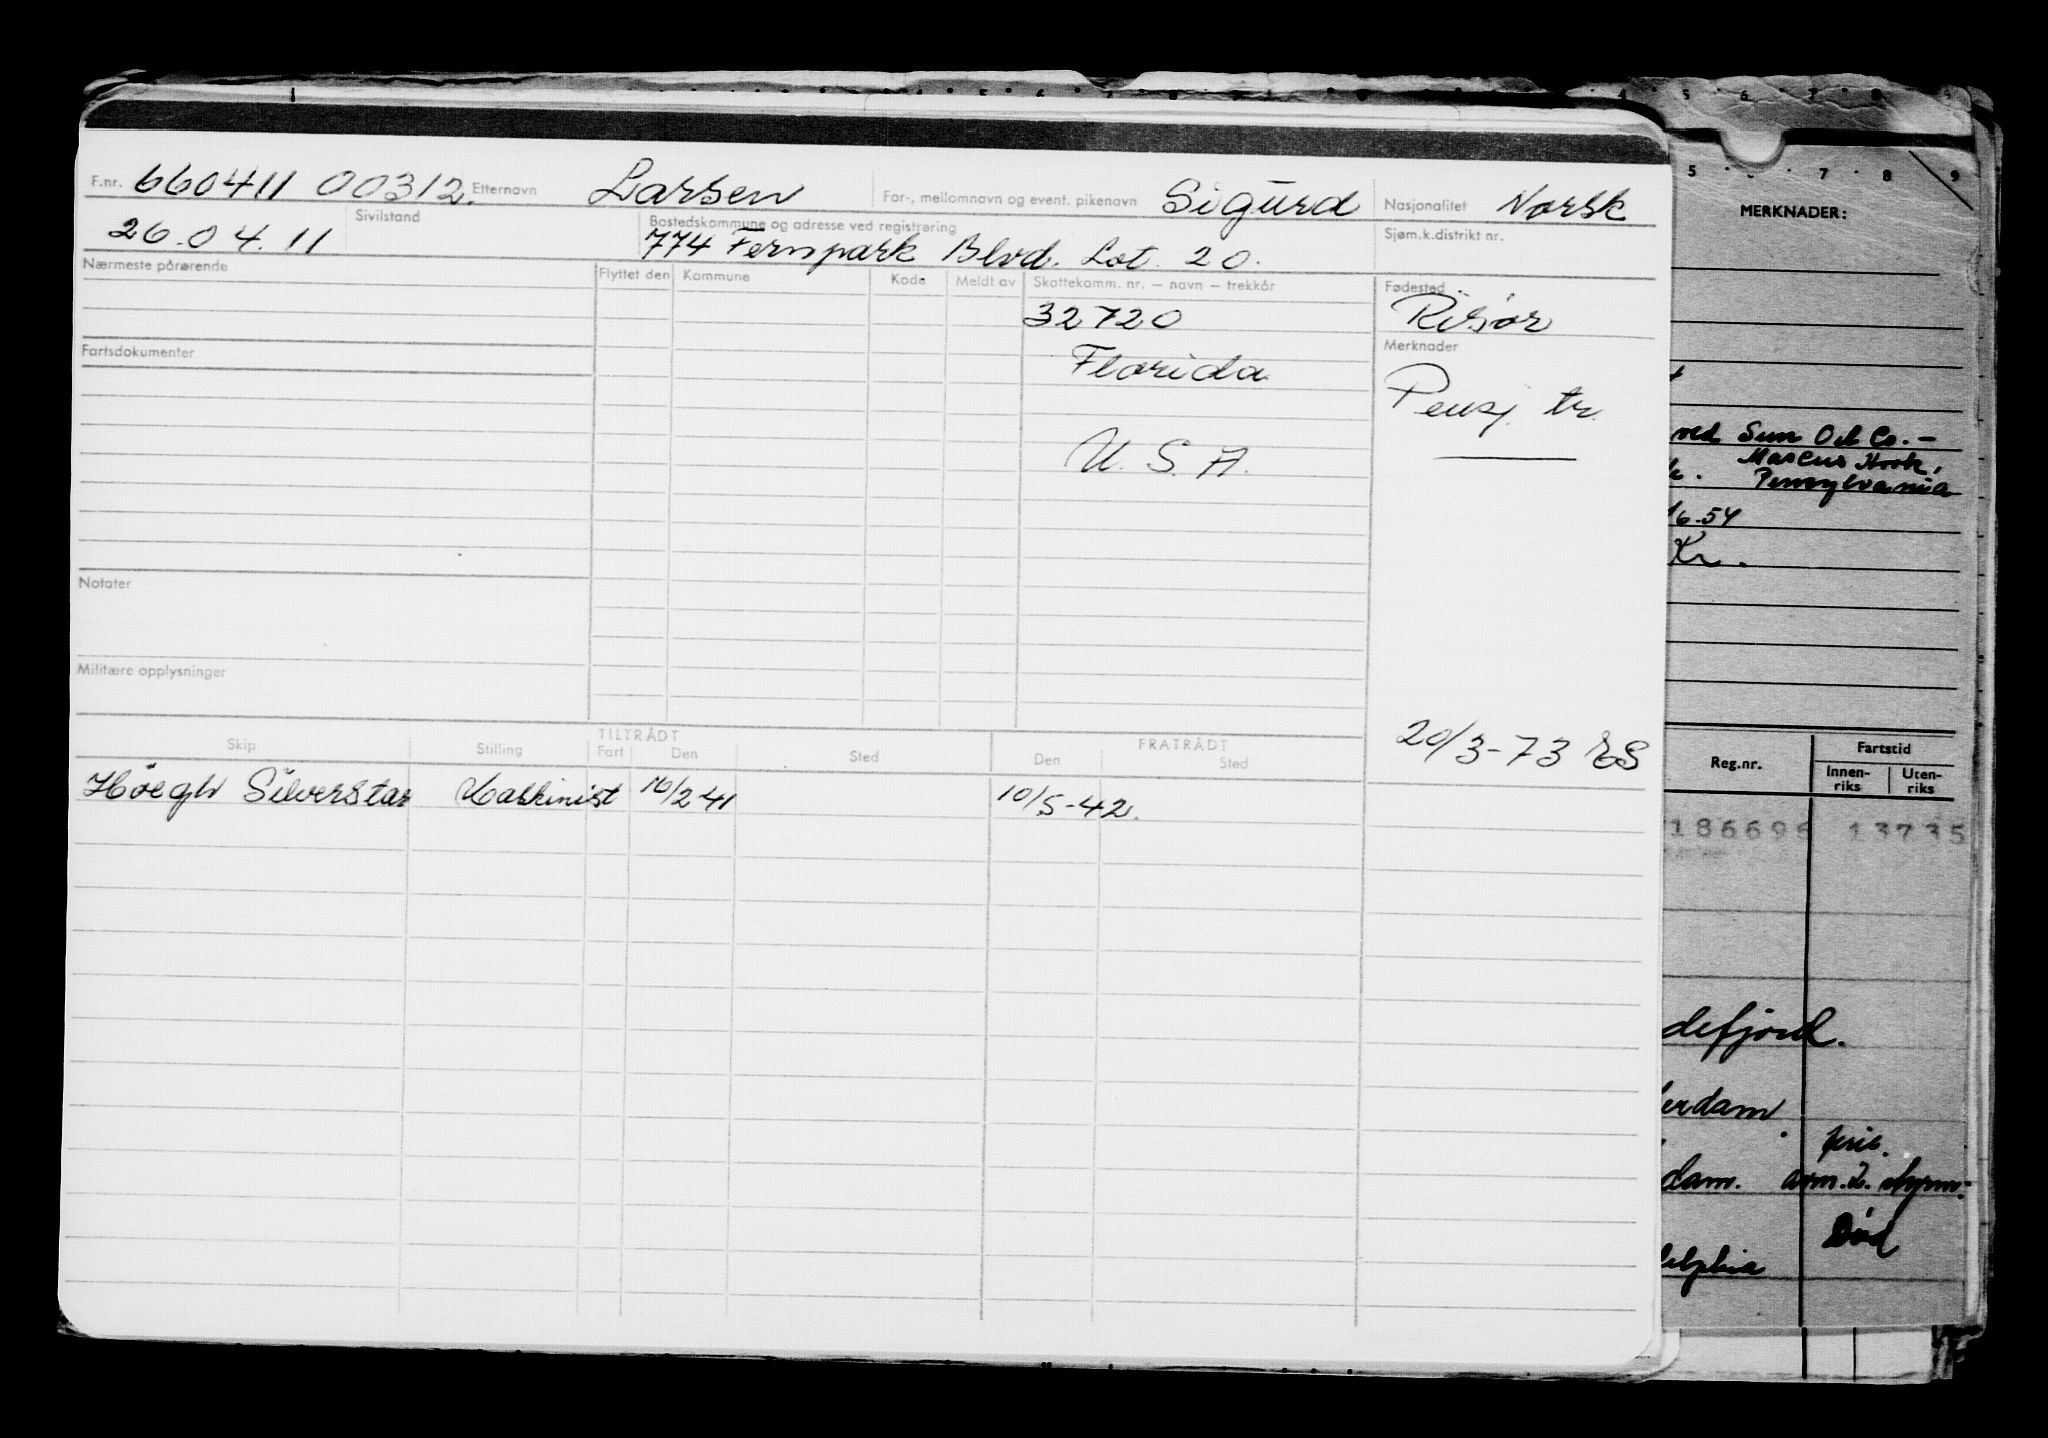 F.nr. 660411 00312. Etternavn Larsen For-, mellomnavn og event. pikenavn Sigurd Nasjonalitet Norsk
26.04.11 Sivilstand Bostedskommune og adresse ved registrering Sjøm.k.distrikt nr.
774 Fernpark Blvd. Lot. 20.
Nærmeste pårørende Flyttet den Kommune Kode Meldt av Skattekomm. nr. – navn – trekkår Fødested
32720 Risør
Fartsdokumenter Merknader
Florida
Pensj. tr.
U.S.A.
Notater
Militære opplysninger
20/3-73
TILTRÅDT FRATRÅDT
Skip Stilling Fart Den Sted Den Sted
Höegh Silverstar Maskinist 16/2 41 10/5-42.
5 7 8 9
MERKNADER:
ved Sun Oil Co.-
Marcus Hook,
Pensylvania
6.54
Kr.
Reg.nr. Fartstid
Innen-riks Uten-riks
186696 13735
defjord.
erdam
dam.
Død
delphia